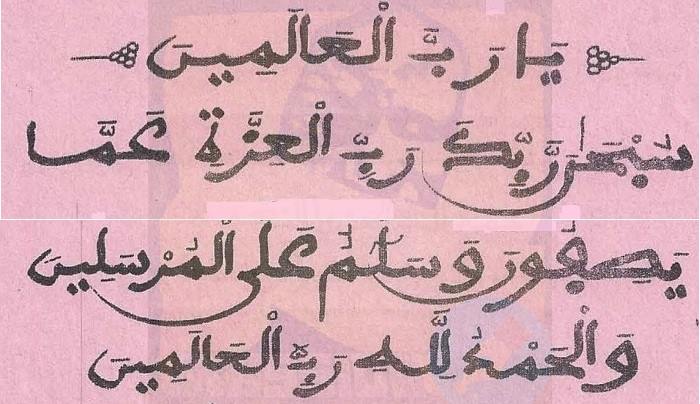 يَا رَبَّ الْعَالَمِينَ
سُبْحَٰنَ رَبِّكَ رَبِّ الْعِزَّةِ عَمَّا
يَصِفُونَ وَسَلَٰمٌ عَلَى الْمُرْسَلِينَ
وَالْحَمْدُ لِلَّهِ رَبِّ الْعَالَمِينَ